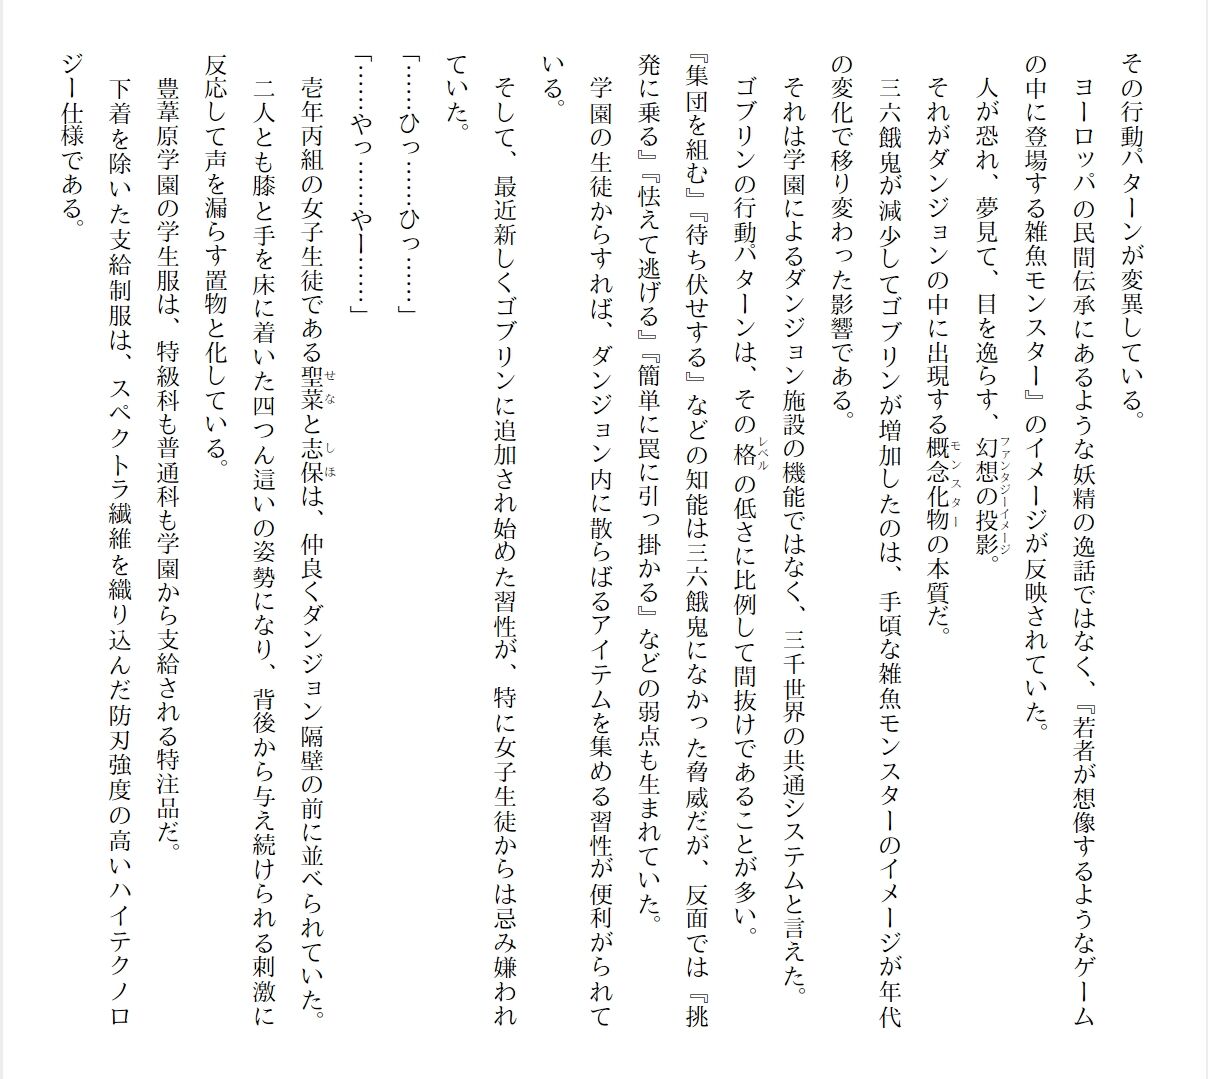 その行動パターンが変異している。
ヨーロッパの民間伝承にあるような妖精の逸話ではなく、『若者が想像するようなゲーム
の中に登場する雑魚モンスター』のイメージが反映されていた。
人が恐れ、夢見て、目を逸らす、幻想の投影ファンタジーイメージ。
それがダンジョンの中に出現する概念化物モンスターの本質だ。
三六餓鬼が減少してゴブリンが増加したのは、手頃な雑魚モンスターのイメージが年代
の変化で移り変わった影響である。
それは学園によるダンジョン施設の機能ではなく、三千世界の共通システムと言えた。
ゴブリンの行動パターンは、その格レベルの低さに比例して間抜けであることが多い。
『集団を組む』『待ち伏せする』などの知能は三六餓鬼になかった脅威だが、反面では『挑
発に乗る』『怯えて逃げる』『簡単に罠に引っ掛かる』などの弱点も生まれていた。
学園の生徒からすれば、ダンジョン内に散らばるアイテムを集める習性が便利がられて
いる。
そして、最近新しくゴブリンに追加され始めた習性が、特に女子生徒からは忌み嫌われ
ていた。
壱年丙組の女子生徒である聖菜せなと志保しほは、仲良くダンジョン隔壁の前に並べられていた。
豊葦原学園の学生服は、特級科も普通科も学園から支給される特注品だ。
下着を除いた支給制服は、スペクトラ繊維を織り込んだ防刃強度の高いハイテクノロ
ジー仕様である。